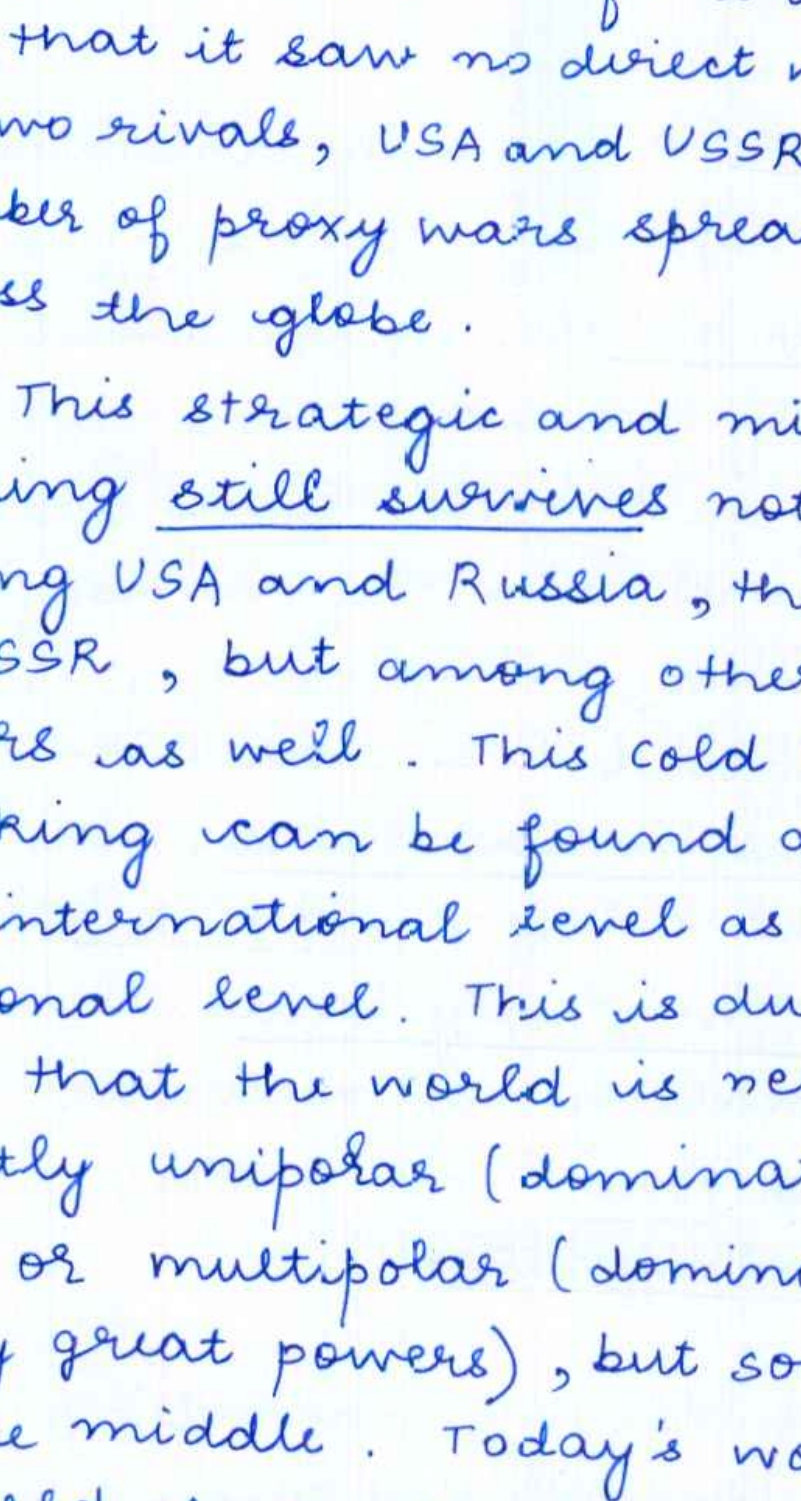 that it saw no direct
wo rivals, USA and USSR
ber of proxy wars sprea
ss the globe.
This strategic and mi
ing still survives not
ng USA and Russia, th
SSR, but among othe
rs as well. This cold
king can be found
international level as
onal level. This is du
that the world is ne
tly unipolar (domina
or multipolar (domin
y great powers), but so
e middle. Today's wo